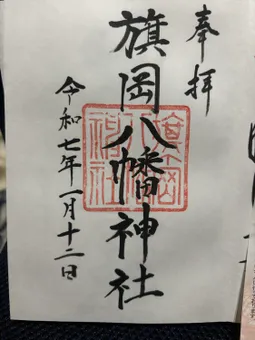 奉拝
旗岡八幡神社
令和七年一月十二日